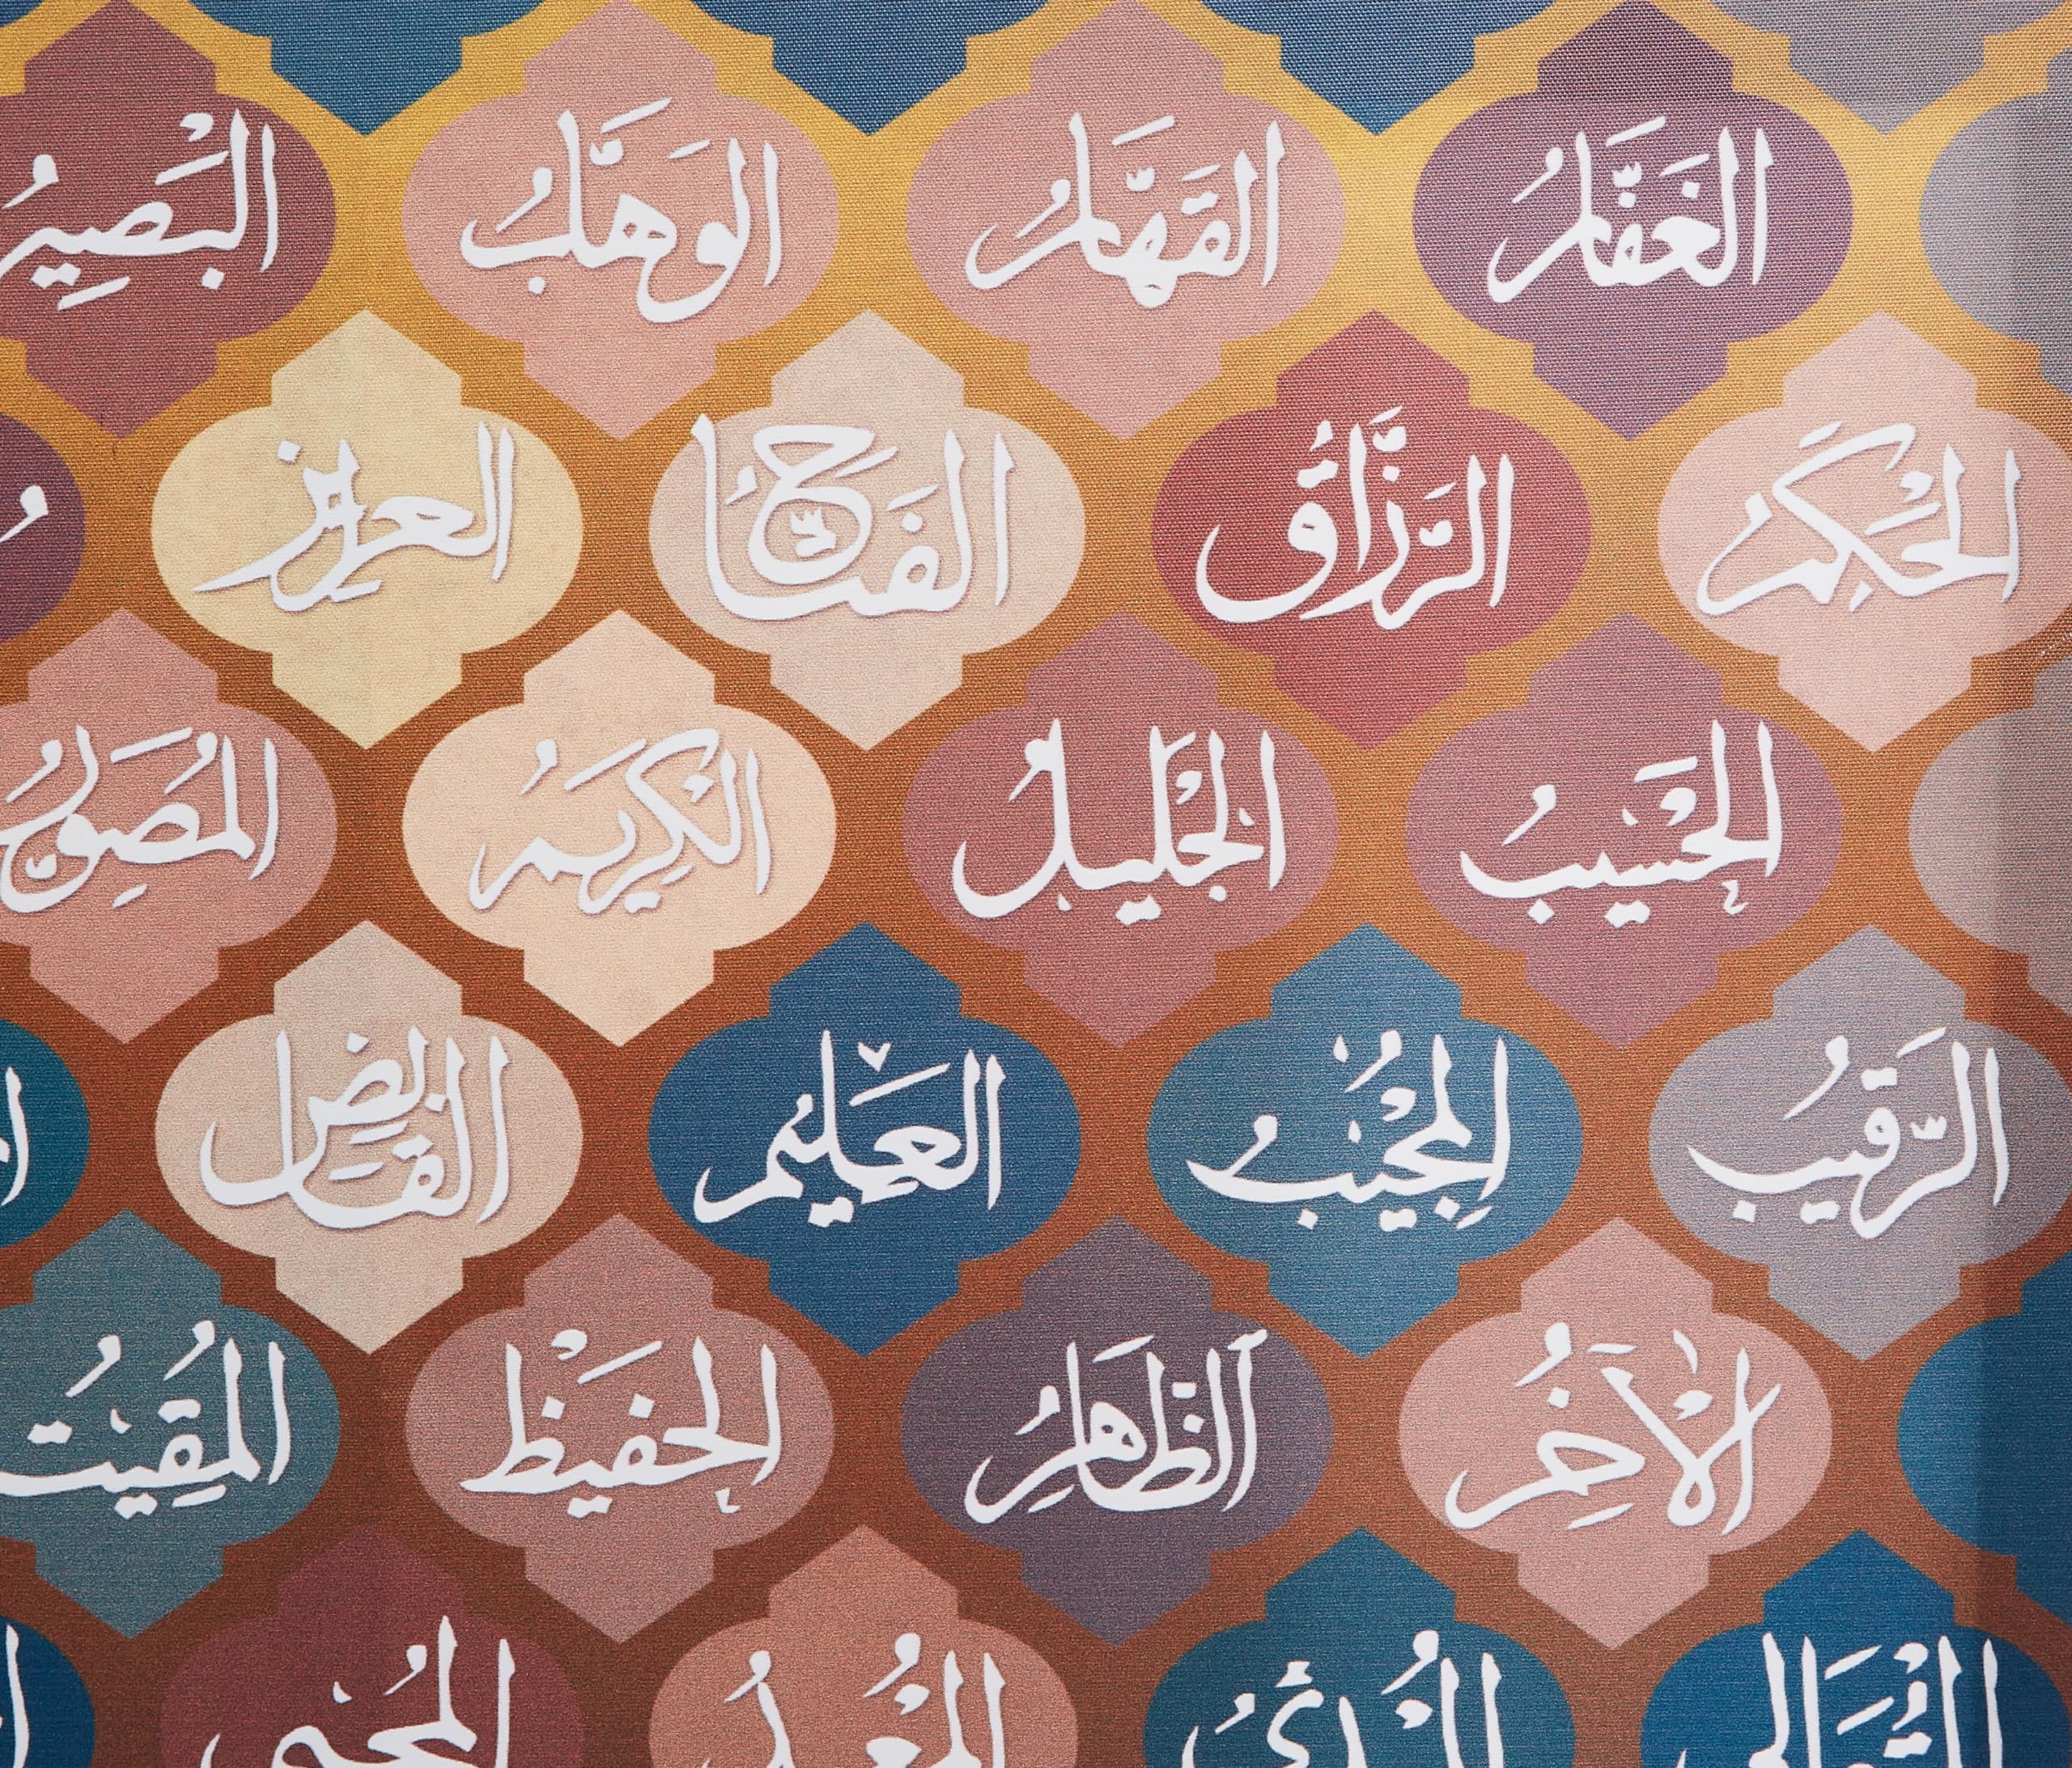 الغَفَّارُ
القَهَّارُ
الوَهَّابُ
البَصِيرُ
الحَكَمُ
الرَّزَّاقُ
الفَتَّاحُ
العزيز
الحَسِيبُ
الجَلِيلُ
الكَرِيمُ
المُصَوِّرُ
الرَّقِيبُ
المُجِيبُ
العَلِيمُ
القَابِضُ
الآخِرُ
الظَّاهِرُ
الحَفِيظُ
المُقِيتُ